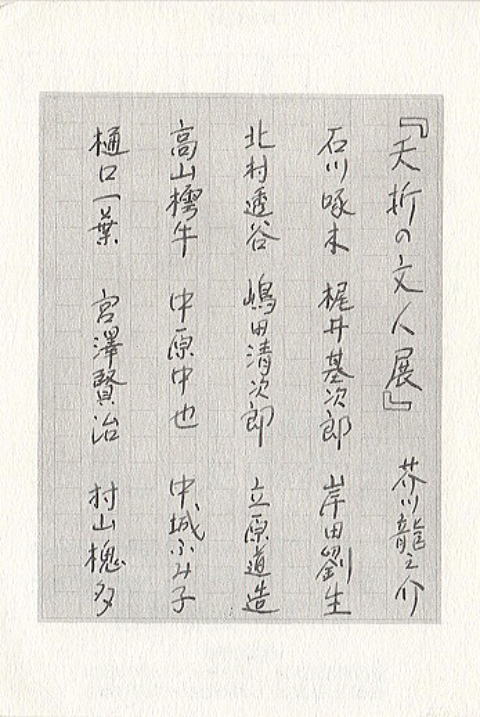 『夭折の文人展』 芥川龍之介
石川啄木 梶井基次郎 岸田劉生
北村透谷 嶋田清次郎 立原道造
高山樗牛 中原中也 中城ふみ子
樋口一葉 宮澤賢治 村山槐多